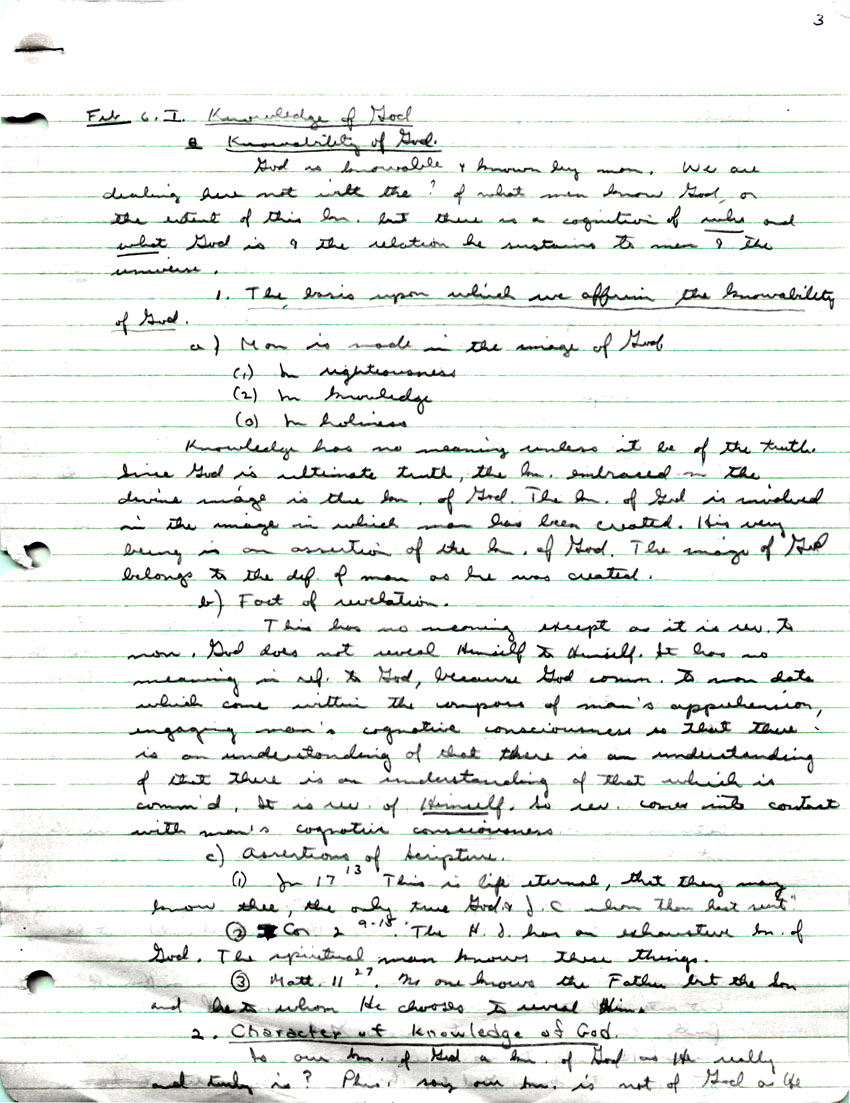 3
Feb 6. I. Knowledge of God
a Knowability of God.
God is knowable & known by man. We are
dealing here not with the ? of what men know God, or
the extent of this kn. but there is a cognition of who and
what God is & the relation he sustains to men & the
universe.
1. The basis upon which we affirm the knowability
of God.
a) Man is made in the image of God
(1) In righteousness
(2) In knowledge
(3) In holiness
Knowledge has no meaning unless it be of the truth.
Since God is ultimate truth, the kn. embraced in the
divine image is the kn. of God. The kn. of God is involved
in the image in which man has been created. His very
being is an assertion of the kn. of God. The image of God
belongs to the def. of man as he was created.
b) Fact of revelation.
This has no meaning except as it is rev. to
man. God does not reveal Himself to Himself. It has no
meaning in ref. to God, because God comm. to man data
which come within the compass of man's apprehension,
engaging man's cognative consciousness so that there
is an understanding of that there is an understanding
of that there is an understanding of that which is
comm'd, It is rev. of Himself. So rev. comes into contact
with man's cognative consciousness.
c) Assertions of Scripture.
(1) Jn 17 13 "This is life eternal, that they may
know thee, the only true God & J. C. whom thou hast sent"
(2) I Cor 2 9-15. The H. S. has an exhaustive kn. of
God. The spiritual man knows these things.
(3) Matt. 11 27. No one knows the Father but the Son
and he to whom He chooses to reveal Him.
2. Character of knowledge of God.
Is our kn. of God a kn. of God as He really
and truly is? Phil. say our kn. is not of God as He